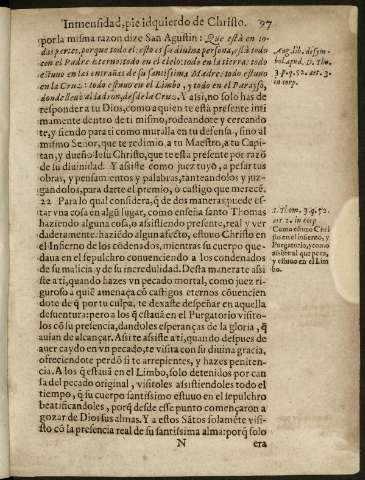 Inmensidad, pie idquierdo de Christo. 97
por la misma razon dize San Agustin: Que està en to-
das partes, porque todo el: esto es su diuina persona, està todo
con el Padre Eterno: todo en el cielo: todo en la tierra: todo
estuuo en las entrañas de su santissima Madre: todo estuuo
en la Cruz: todo estuuo en el Limbo, y todo en el Parayso,
donde lleuò al ladron, desde la Cruz. Y assi, no solo has de
responder a tu Dios, como a quien te està presente inti
mamente dentro de ti mismo, rodeandote y cercando
te, y siendo para ti como muralla en tu defensa, sino al
mismo Señor, que te redimio, a tu Maestro, a tu Capi-
tan, y dueño Iesu Christo, que te està presente por razõ
de su diuinidad. Y assiste como juez tuyo, a pesar tus
obras, y pensamientos y palabras, tanteandolos y juz-
gandolos, para darte el premio, ò castigo que merecẽ.
22 Para lo qual considera, q̃ de dos maneras puede es-
tar vna cosa en algũ lugar, como enseña santo Thomas
haziendo alguna cosa, o assistiendo presente, real y ver
daderamente: haziẽdo algun afecto, estuuo Christo en
el Infierno de los cõdenados, mientras su cuerpo que-
daua en el sepulchro conuenciendo a los condenados
de su malicia y de su incredulidad. Desta manera te assi
ste a ti, quando hazes vn pecado mortal, como juez ri-
guroso a quiẽ amenaça cõ castigos eternos cõuencien
dote de q̃ por tu culpa, te dexaste despeñar en aquella
desuentura: pero a los q̃ estauã en el Purgatorio visito-
los cõ su presencia, dandoles esperanças de la gloria, q̃
auian de alcançar. Assi te assiste a ti, quando despues de
auer caydo en vn pecado, te visita con su diuina gracia,
ofreciendote perdõ si te arrepientes, y hazes peniten-
cia. A los q̃ estauã en el Limbo, solo detenidos por cau
sa del pecado original, visitoles assistiendoles todo el
tiempo, q̃ su cuerpo santissimo estuuo en el sepulchro
beatificandoles, porq̃ desde esse punto començaron a
gozar de Dios sus almas. Y a estos Sãtos solamẽte visi-
sto cõ la presencia real de su santissima alma: porq̃ solo
N era
Aug. lib. de sym-
bol. apud. D. Tho.
3. p. q. 52. art. 3.
in corp.
S. Thom. 3. q. 52.
art. 2. in corp.
Como estuuo Chri
sto en el infierno, y
Purgatorio, y como
assiste al que peca,
y estuuo en el Lim
bo.